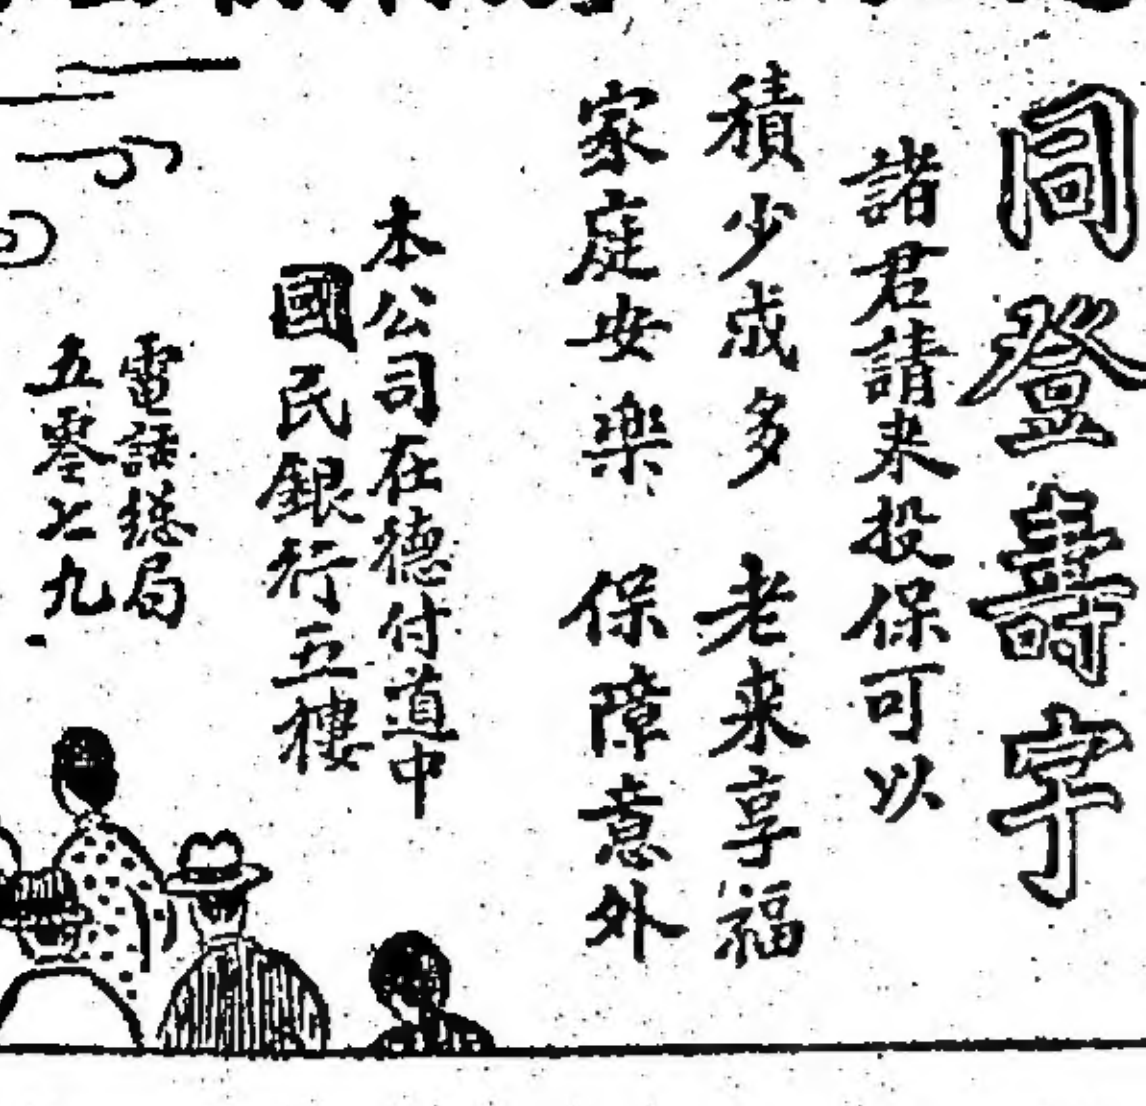 同登壽字
諸君請来投保可以
積少成多 老来享福
家庭安樂 保障意外
本公司在德付道中
國民銀行五樓
電話總局
五零七九